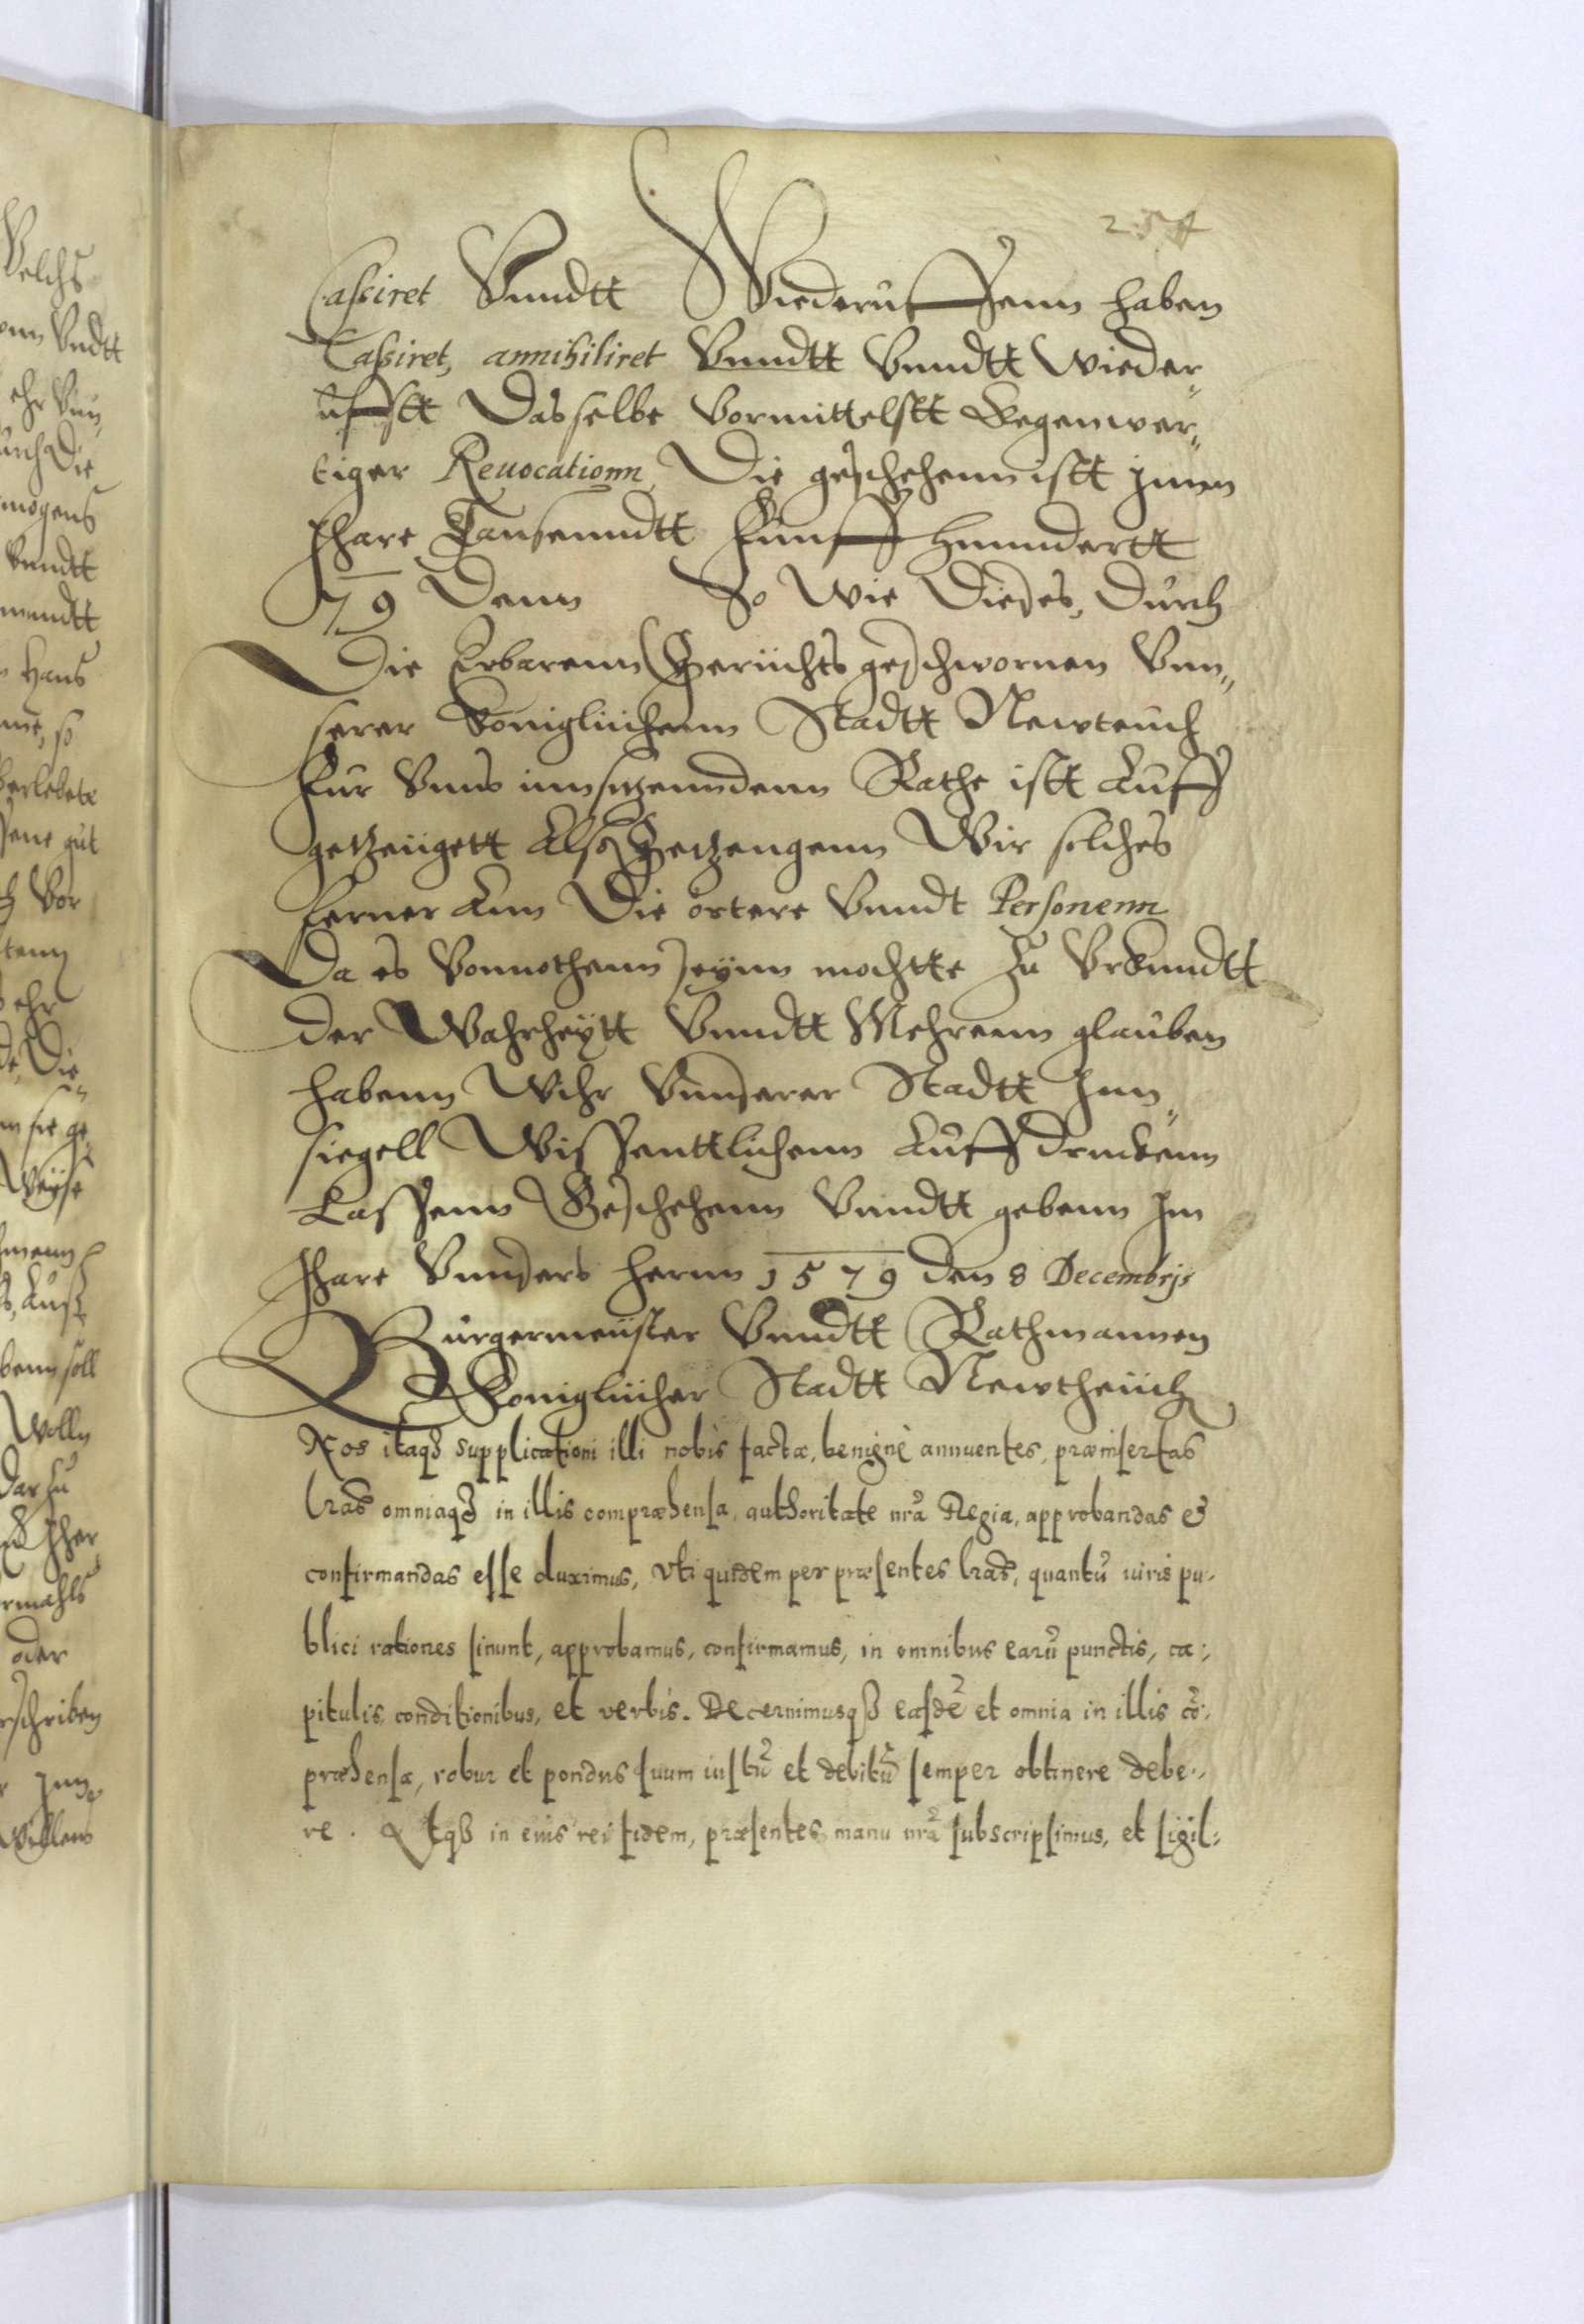 254
Cassiret Vnndtt Wiederuffenn haben
Cassiret, annihiliret Vnndtt Vnndtt Wieder„
ufftt Dasselbe Vormittelstt Kegenwer„
tiger Reuocationn, Die geschehenn istt Jmm
Jhare Tausenndtt Funff Hunndertt
79 Denn So Wie Dieses, Durch
Die Erbarenn Gerichts geschwornen Vnn„
serer Königlichenn Stadtt Newteuch
Fur Vnns imsitzenndenn Rathe istt Auff
getzeugett Also Getzeugenn Wir solches
ferner Ann Die örtere Vnndt Personenn
Da es Vonnothenn seynn mochtte Zu Vrkundtt
der Wahrheÿtt Vnndtt Mehrenn glauben
habenn Wihr Vnnserer Stadtt Inn„
siegell Wissenttlichenn Auffdruckenn
Lassenn Geschehenn Vnndtt gebenn Im
Jhare Vnnsers herrnn 1579 den 8 Decembrjs
Burgermeister Vnndtt Rathmannen
Königlicher Stadtt Newtheuch
Nos itaqȝ supplicationi illi nobis factæ, benignè annuentes, præinsertas
lrãs omniaqȝ in illis compræhensa, authoritate nrã Regia, approbandas et
confirmandas esse duximus, Vti quidem per præsentes lrãs, quantũ iuris pu-
blici rationes sinunt, approbamus, confirmamus, in omnibus earũ punctis, ca:
pitulis, conditionibus, et verbis. Decernimusqȝ easdẽ et omnia in illis cõ:
præhensa, robur et pondus suum iustũ et debitũ semper obtinere debe-
re. Atqȝ in eius rei fidem, præsentes manu nrã subscripsimus, et sigil:
Welchs
Vndtt
ehr Vnn„
durch Die
mögens
Vnndtt
Hans
so
gut
Vor
ehr
Die„
sie ge„
Weise
Auß
soll
Wolln
Darzu
Jher
oder
Jnn
Willens